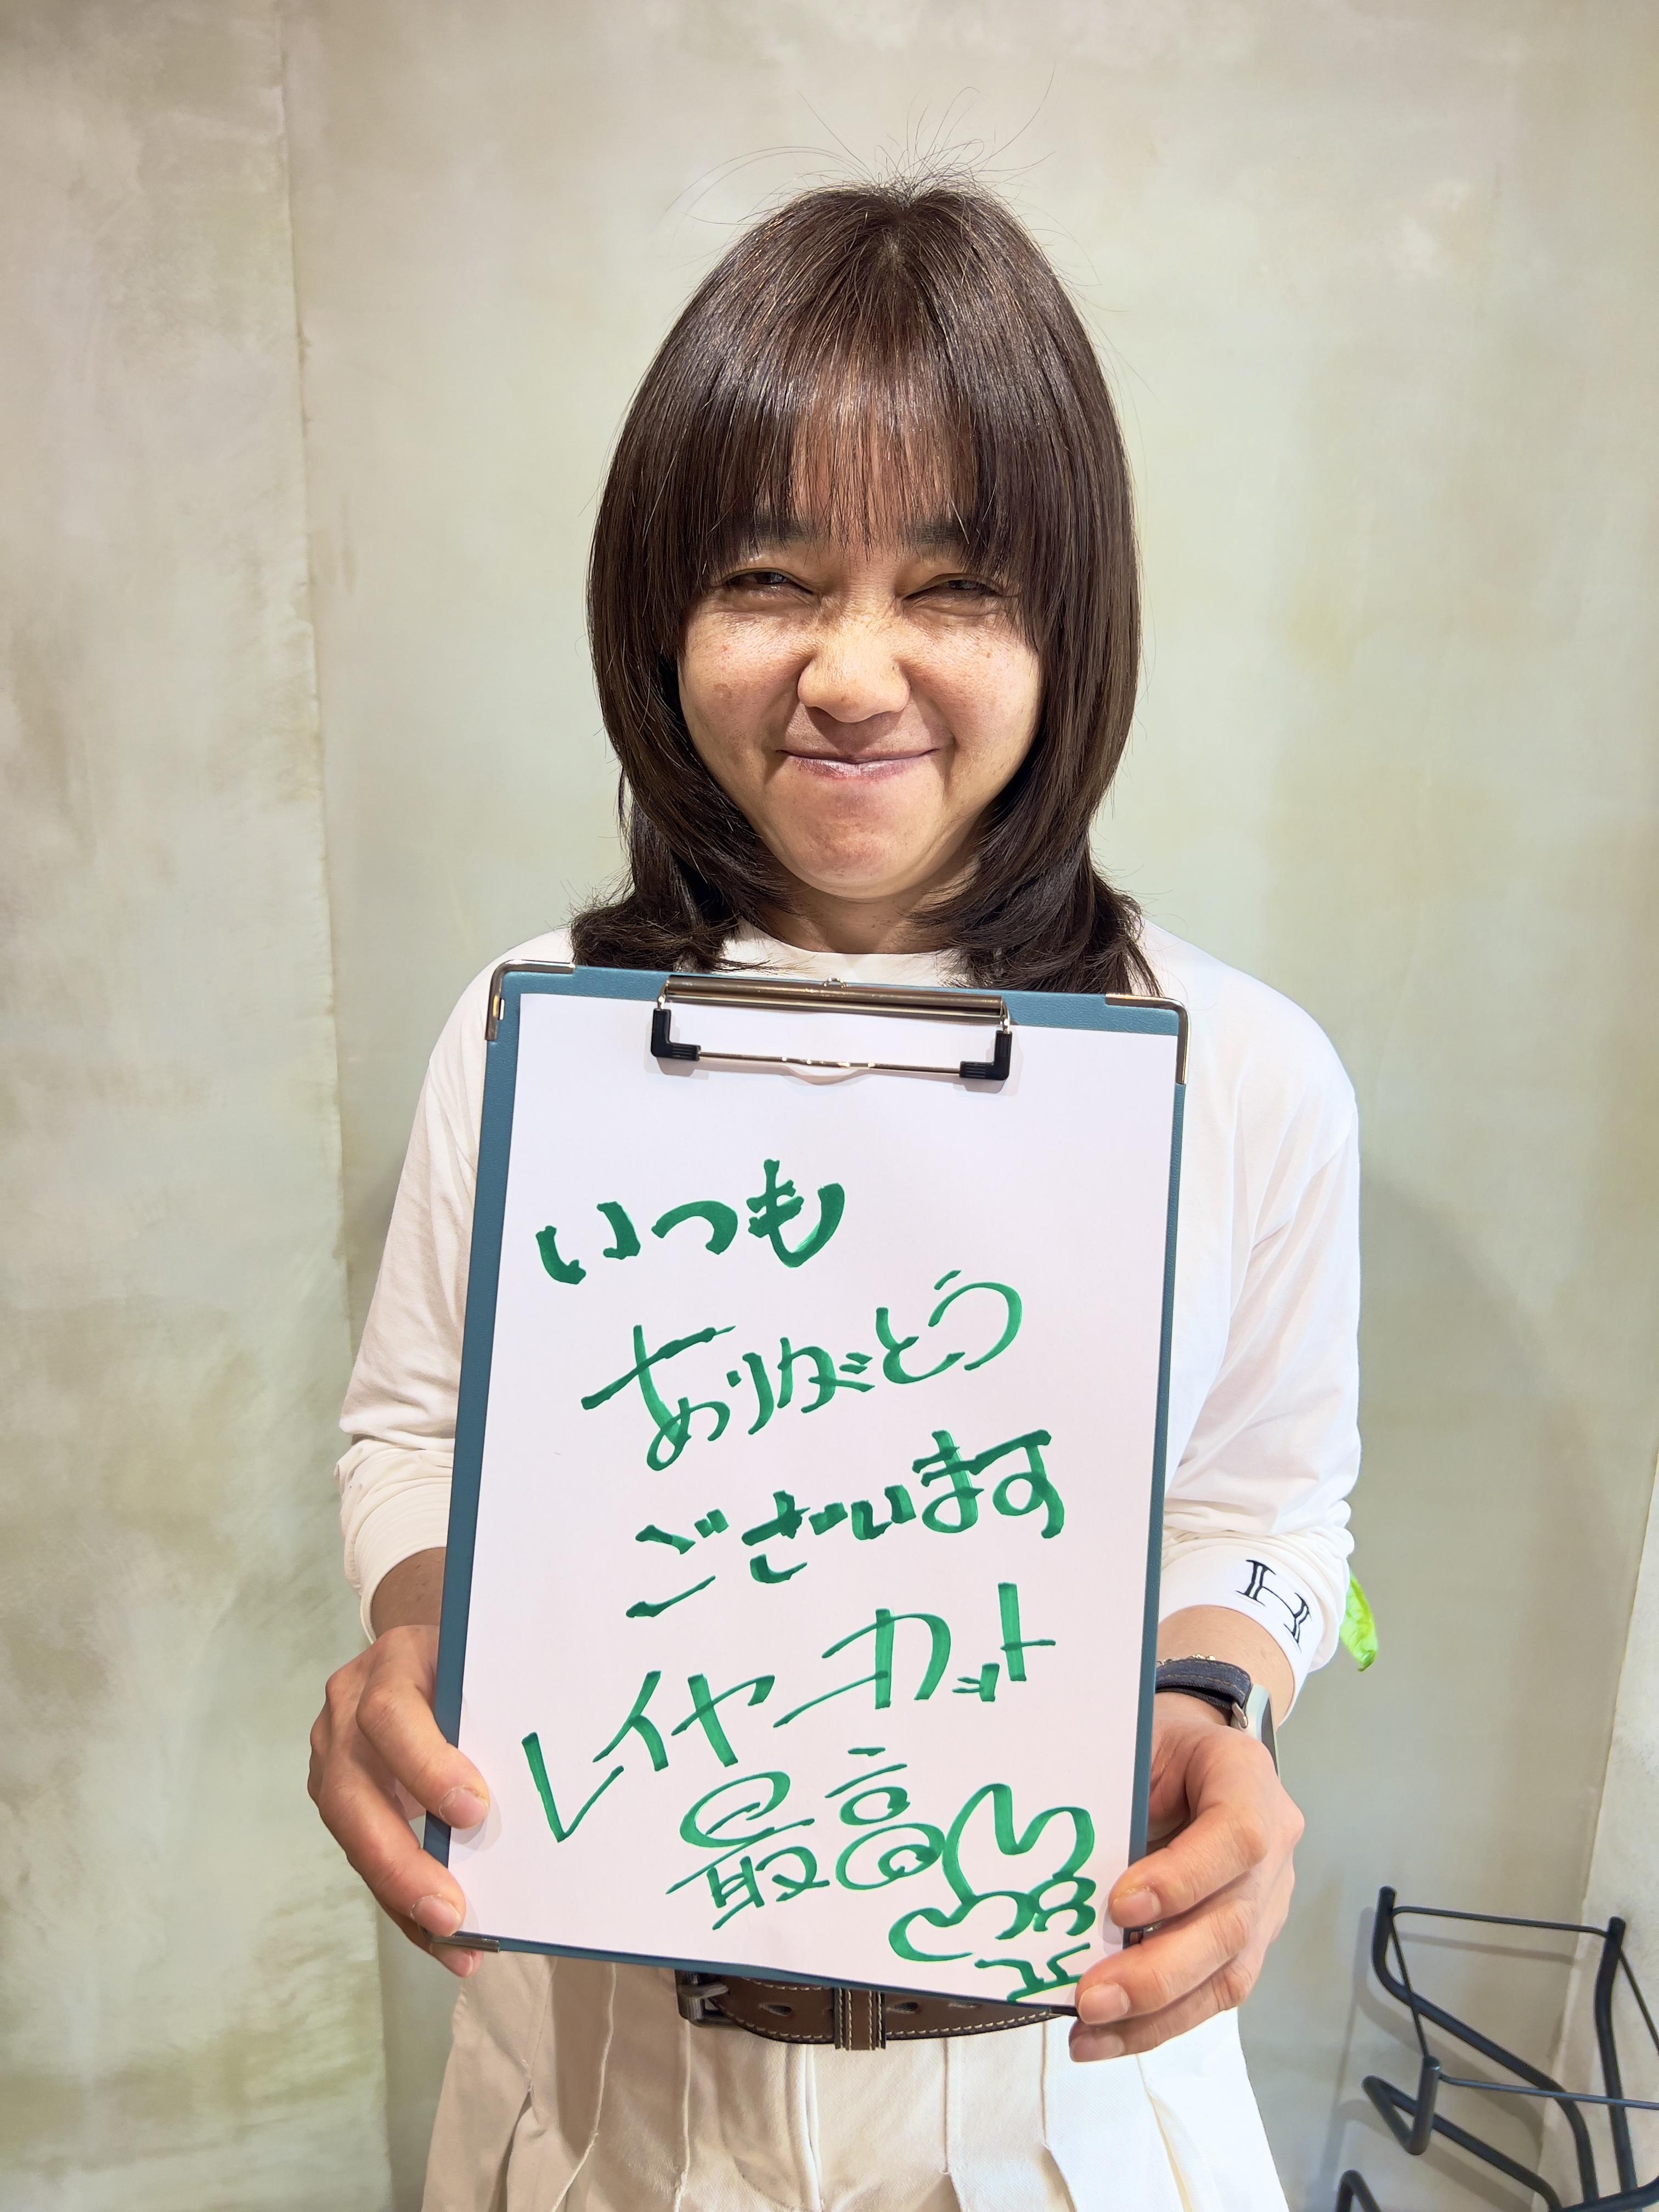 いつも
ありがとう
ございます
レイヤーカット
最高
H